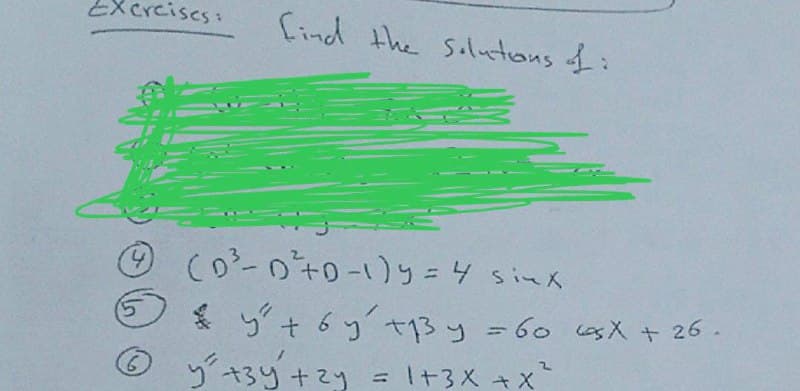 Exercises: find the solutions of:
④ (D³ - D² + D - 1) y = 4 sin x
⑤ y'' + 6y' + 13y = 60 cos X + 26.
⑥ y'' + 3y' + 2y = 1 + 3X + X²